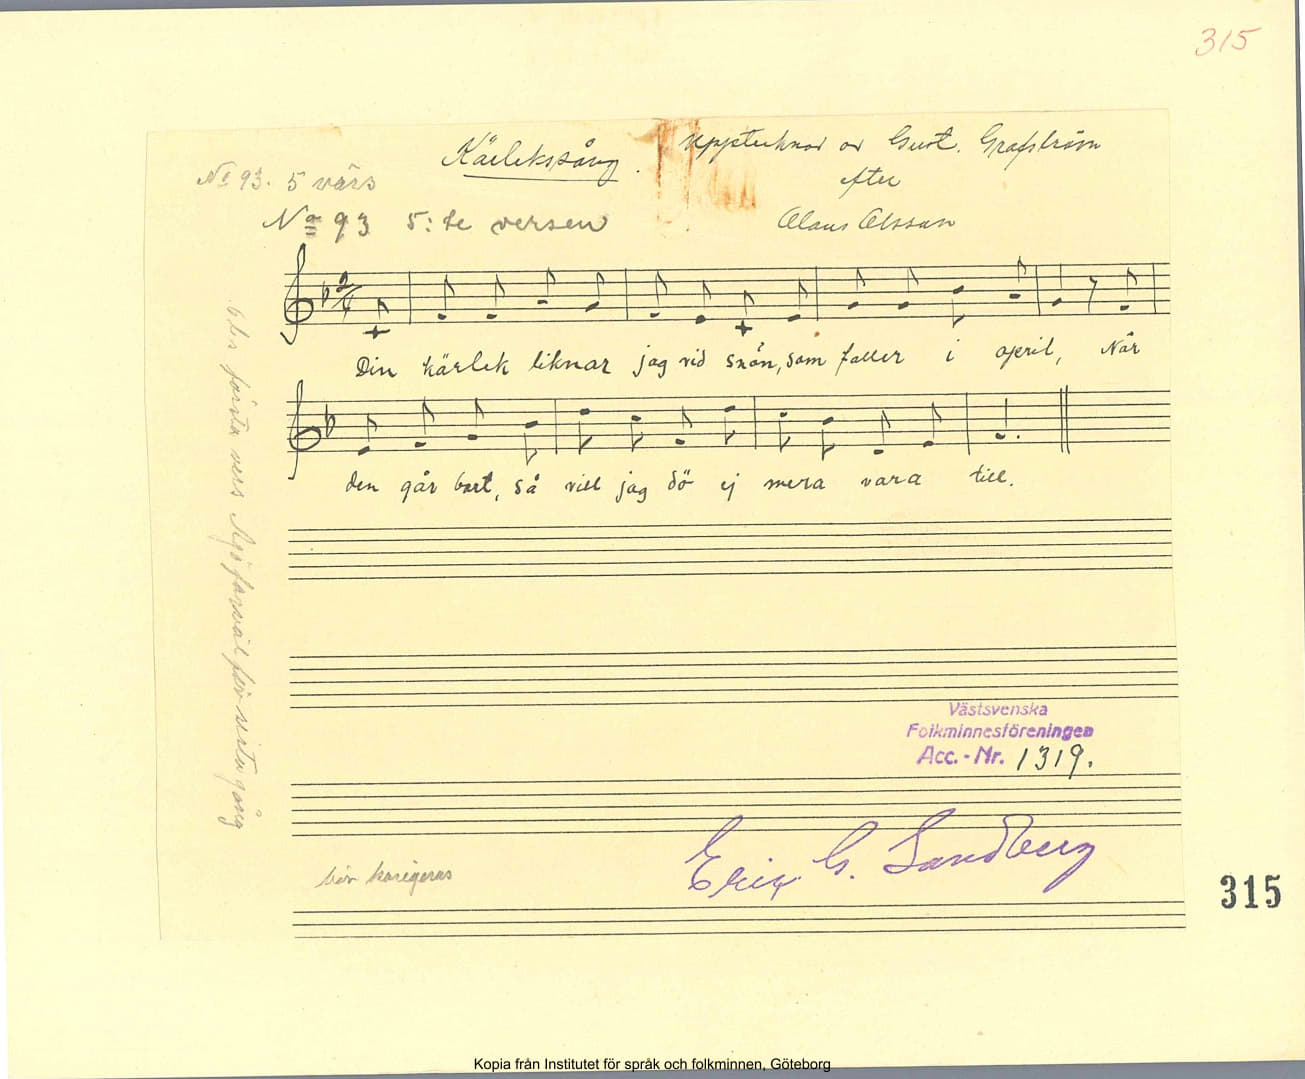 315
Kärlekssång. Upptecknad av Gust. Grafström
efter
Olaus Olsson
No 93. 5 värs
No 93 5:te versen
2/4
Din kärlek liknar jag vid snön, som faller i april, När
den går bort, så vill jag dö ej mera vara till.
första vers farväl för sista gång
Västsvenska
Folkminnesföreningen
Acc.-Nr. 1319.
Eric G. Sandberg
bör korrigeras
315
Kopia från Institutet för språk och folkminnen, Göteborg